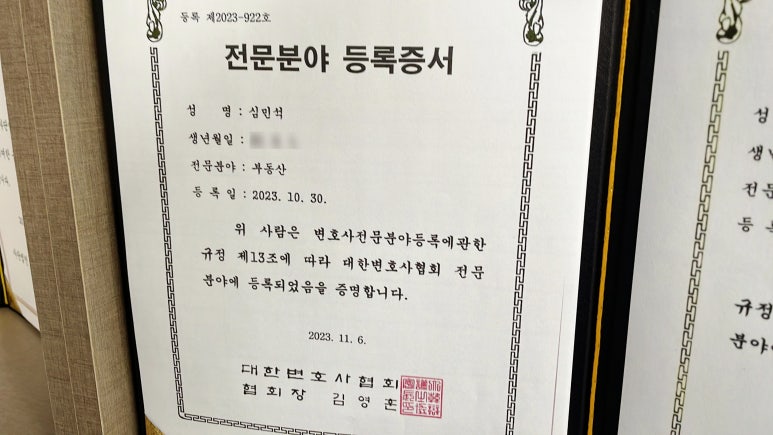 등록 제2023-922호
전문분야 등록증서
성 명 : 심민석
생년월일 :
전문분야 : 부동산
등 록 일 : 2023. 10. 30.
위 사람은 변호사전문분야등록에관한
규정 제13조에 따라 대한변호사협회 전문
분야에 등록되었음을 증명합니다.
2023. 11. 6.
대한변호사협회
협회장 김영훈
성
생년
전문
등 록
규정
분야에